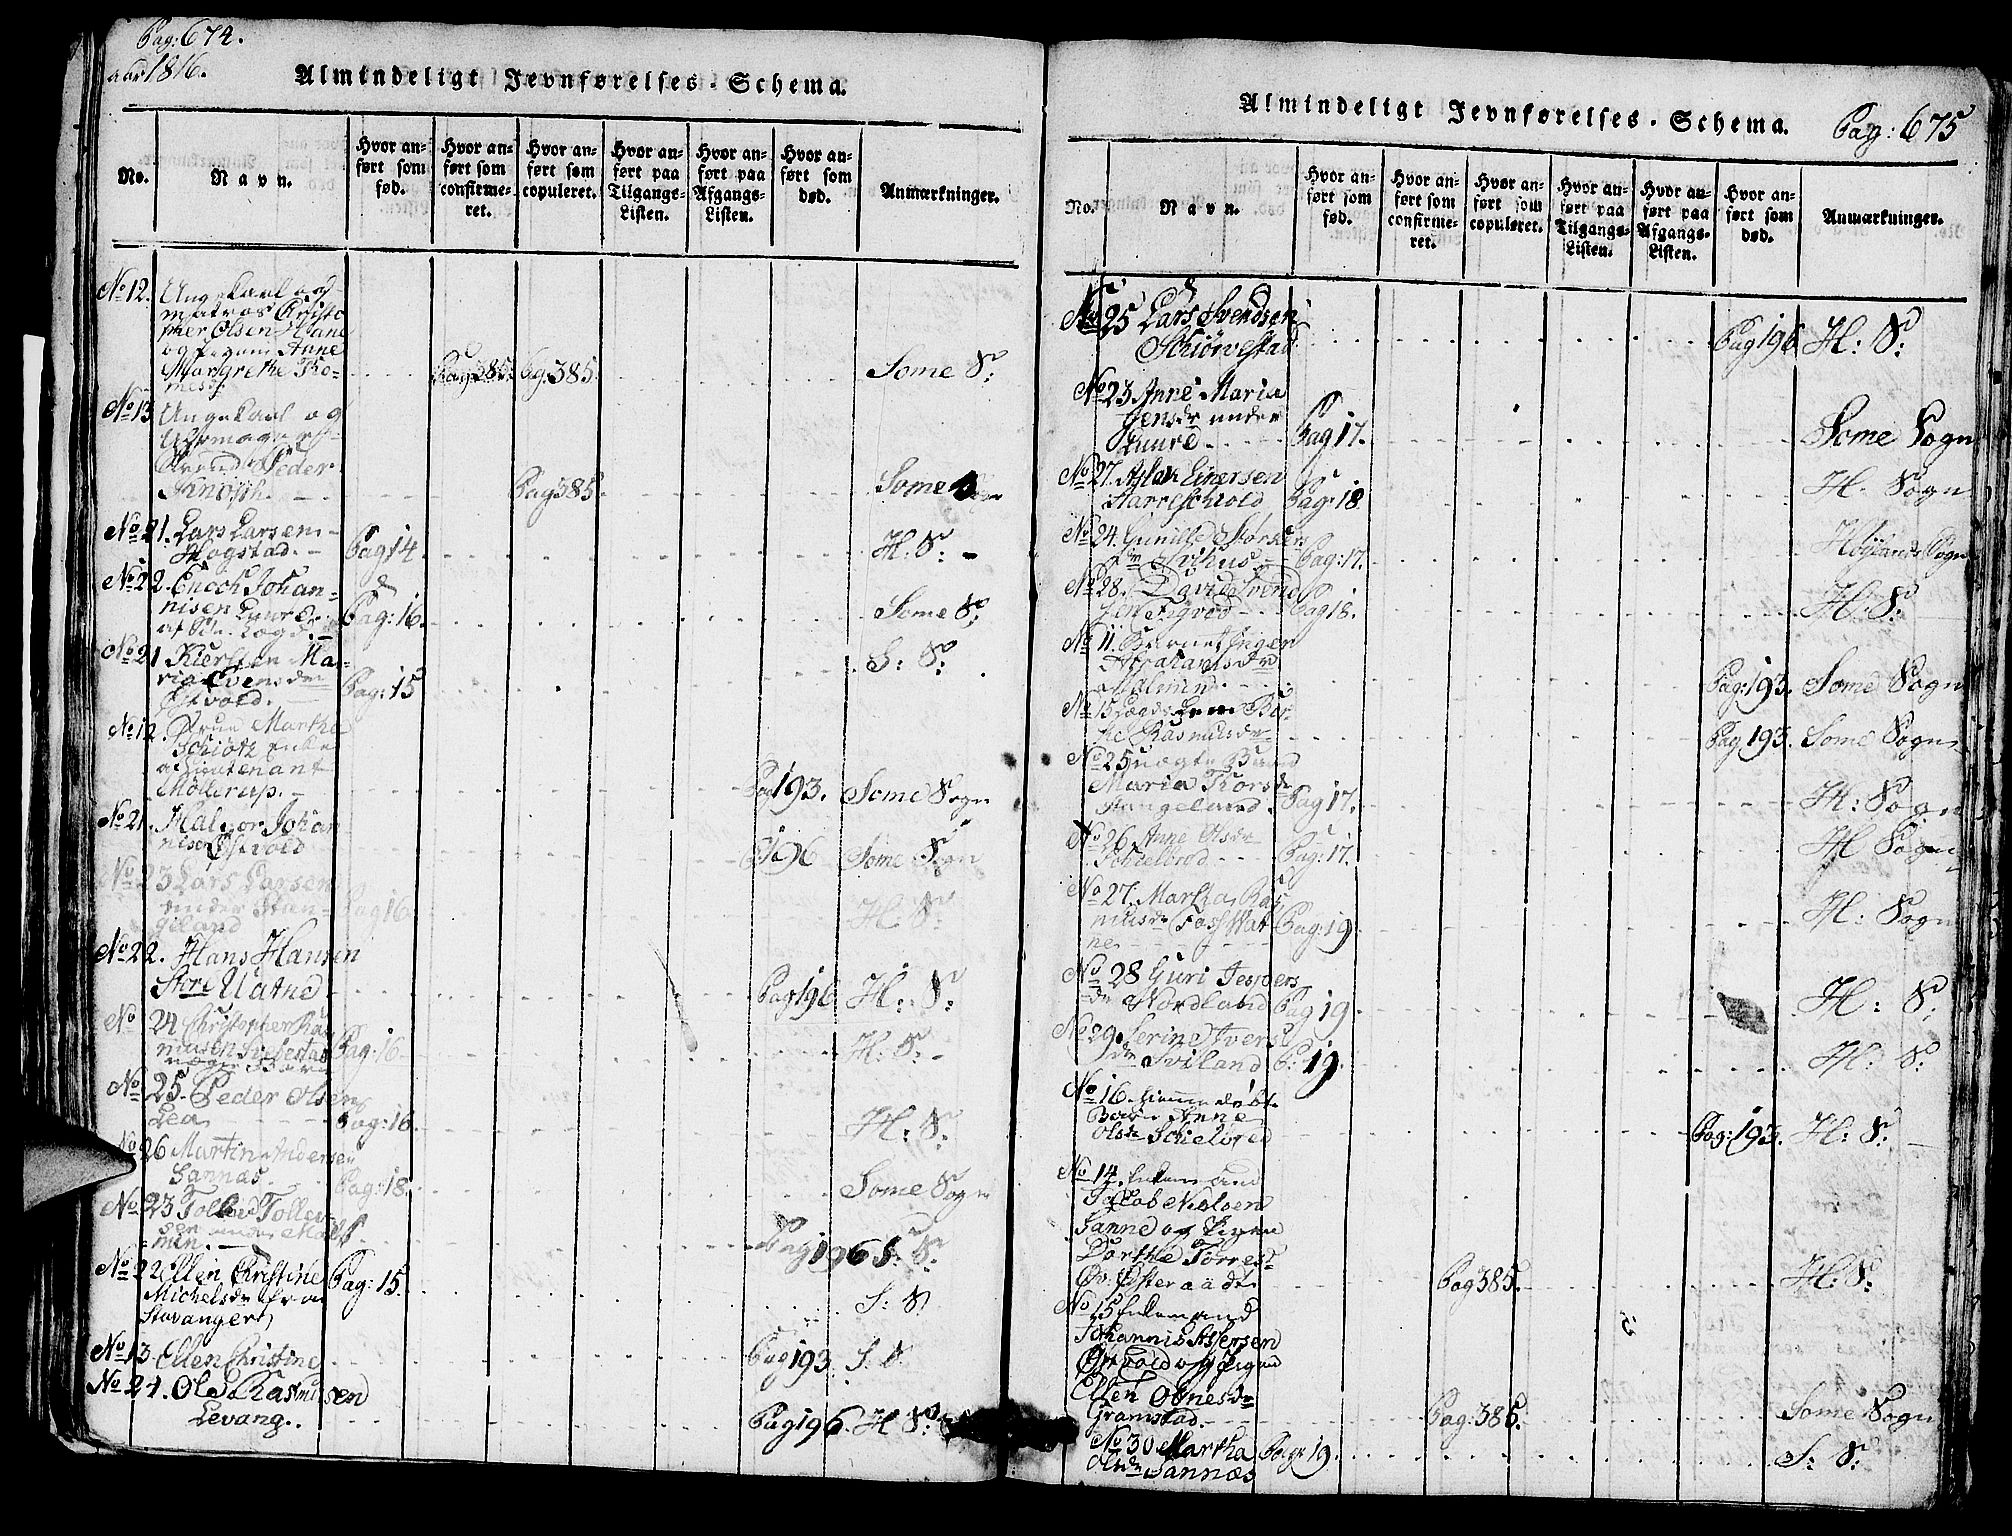 Pag: 674.
aar 1816.
Almindeligt Jevnførelses-Schema.
No.
Navn.
Hvor anført som fød.
Hvor anført som confirmeret.
Hvor anført som copuleret.
Hvor anført paa Tilgangs-Listen.
Hvor anført paa Afgangs-Listen.
Hvor anført som død.
Anmærkninger.
No 12. Ungekarl og
matros Christo
pher Olsen
og Pigen Anne
Margrethe Tho-
mesdr Pag 385. Pag. 385. Some S:
No 13 Ungekarl og
Uhrmager
Svend Peder
Pag 385. Some Sogn
No 21. Lars Larsen
Hogstad. Pag 14 H. S.
No 22. Enoch Johan-
nisen Luure
Pag: 16. Some S:
No 21 Kiersten Ma-
ria Evensdr
Pag: 15 S: S.
No 12. Frue Martha
Schiötz Enke
af Lieutenant
Möllerup. Pag 193. Some Sogn
No 21. Halvor Johan
nisen Østvold 196 Some Sogn
No 23 Lars Larsen
under Stan-
geland Pag 16 H: S:
No 22. Hans Hansen
Store Uatne Pag 196 H: S:
No 24 Christopher Ras
musen
Pag: 16 H: S.
No 25. Peder Olsen
Lea Pag: 16. H: S:
No 26 Martin Andersen
Sannæs. Pag: 18. Some Sogn
No 23 Tollev Tollev-
sen under Malm-
Pag 196 S: S:
No 22 Ellen Christine
Michelsdr fra
Stavanger Pag: 15. S: S
No 13. Ellen Christine Pag 193 S: S.
No 24. Ole Rasmussen
Levang. Pag 196. H S:
Almindeligt Jevnførelses-Schema.
Pag: 675
No.
Navn.
Hvor anført som fød.
Hvor anført som confirmeret.
Hvor anført som copuleret.
Hvor anført paa Tilgangs-Listen.
Hvor anført paa Afgangs-Listen.
Hvor anført som død.
Anmærkninger.
No 25 Lars Svendsen
Schiørvestad Pag 196 H: S:
No 23 Anne Maria
Jensdr under
Luure Pag 17. Some Sogn
No 27. Aslak Einersen
Pag: 18 H. Sogn
No 24. Gunille
Pag: 17. Höylands Sogn
No 28. David Svend
sen Figved Pag 18. H: S:
No 11. Barnet Inger
Abrahamsdr
Malmen Pag: 193. Some Sogn
No 15 Lægds Lem Bir-
the Rasmusdr Pag 193. Some Sogn
No 25 uægte Barn
Maria Thorsdr
Stangeland. Pag 17. H: Sogn
No 26 Anne Olsdr
Pag: 17. H Sogn
No 27. Martha Ras
musdr Foss Vat
ne Pag: 19 H: Sogn
No 28 Guri Jespers
dr Nordland Pag 19 H: S:
No 29. Serine Ivers
dr Sviland P: 19. H: S:
No 16. Hiemme døbt
Barn Anne
Olsdr Schielbred Pag: 193. H: S:
No 14. Enkemand
Jacob Nielsen
Sanne og Pigen
Dorthe Torresdr
Pag 385. H: S:
No 15 Enkemand
Johannis Assersen
Østvold og Pigen
Ellen Odnesdr
Gramstad Pag: 385. Some Sogn
No 30 Martha
Olsdr Sannæs Pag: 19. S: S: